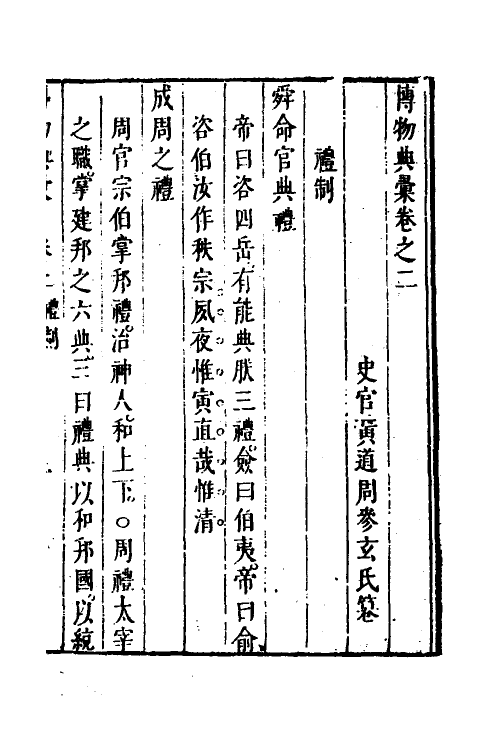 博物典彙卷之二
史官黃道周參玄氏纂
禮制
舜命官典禮
帝曰咨四岳有能典朕三禮僉曰伯夷帝曰俞
咨伯汝作秩宗夙夜惟寅直哉惟清
成周之禮
周官宗伯掌邦禮治神人和上下○周禮太宰
之職掌建邦之六典三曰禮典以和邦國以統
禮制